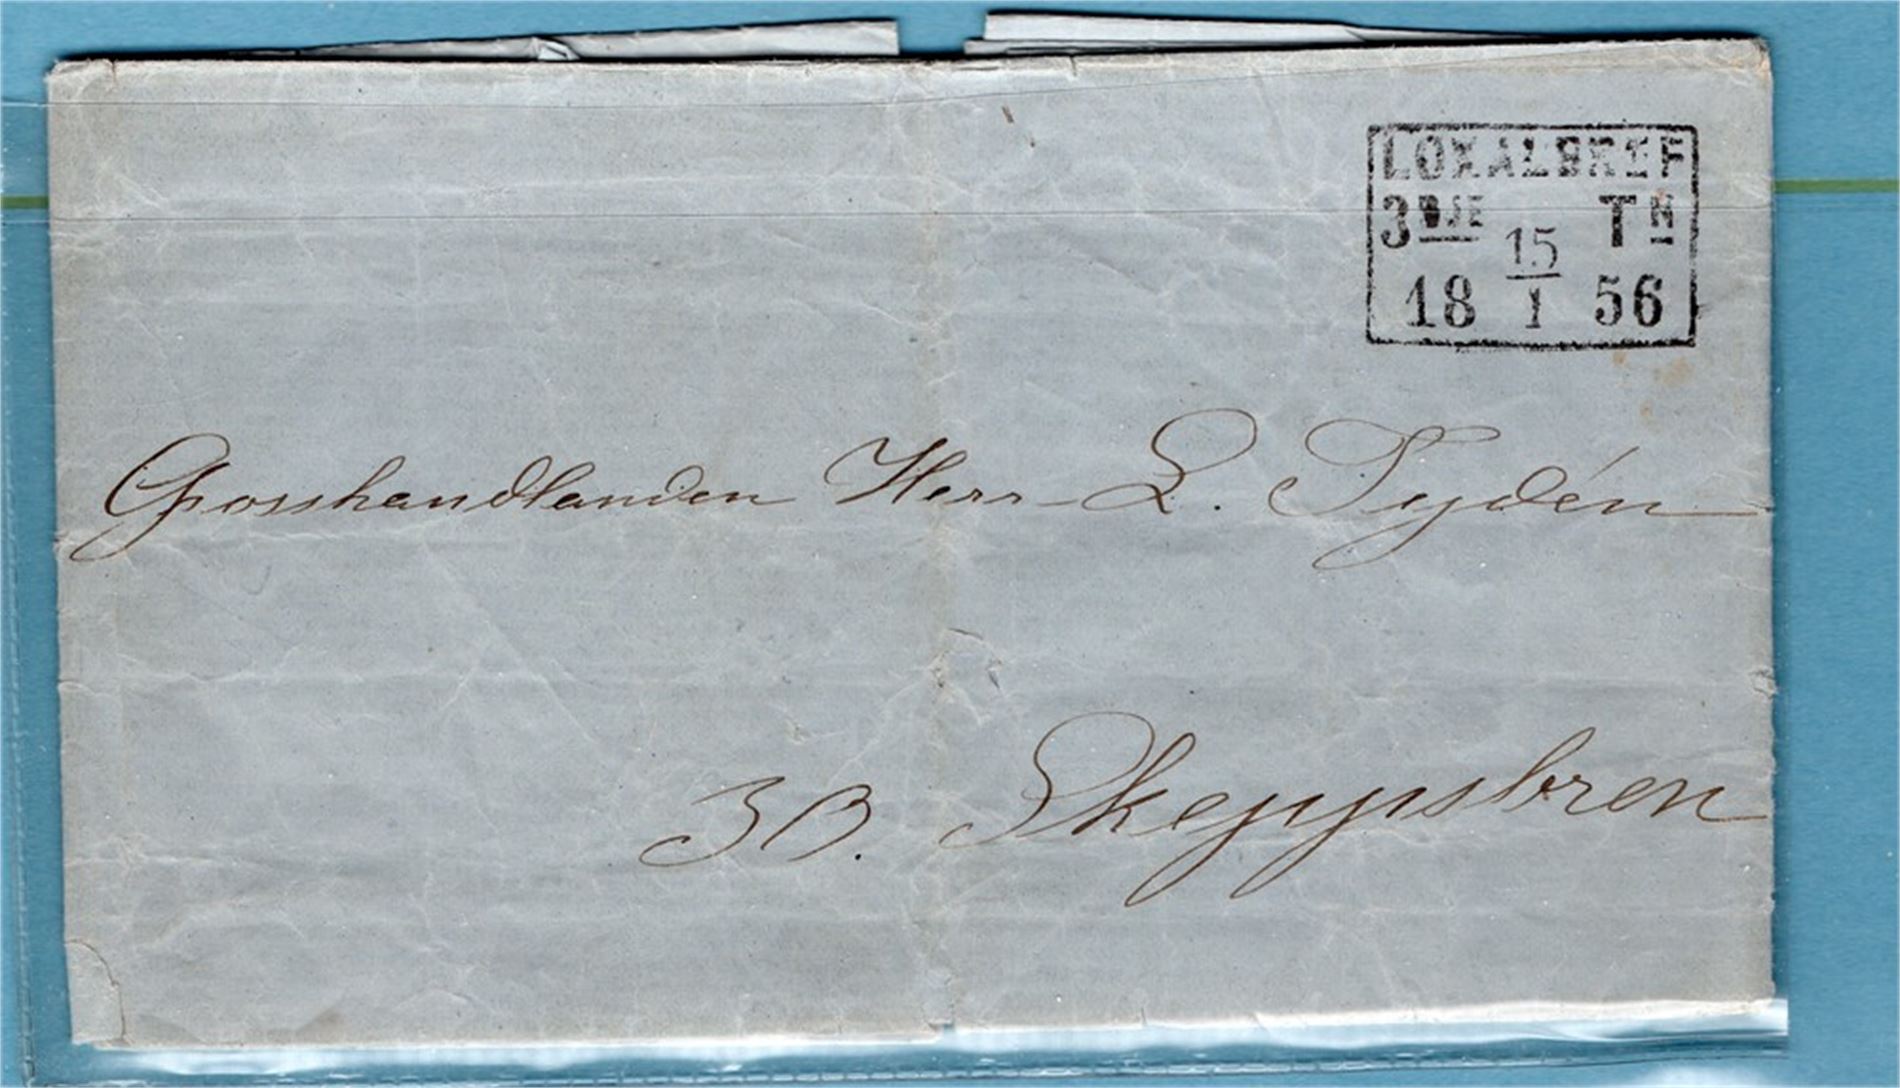 LOKALBREF
3DJE TN
18 15/1 56
Grosshandlanden Herr L. Tydén
30. Skeppsbron